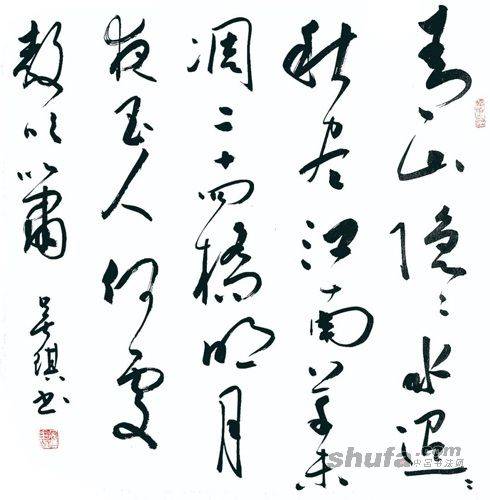 青山隐〻水迢〻
秋尽江南草未
凋二十四橋明月
夜玉人何處
教吹簫
吴琪书
shufa.com
中国书法网